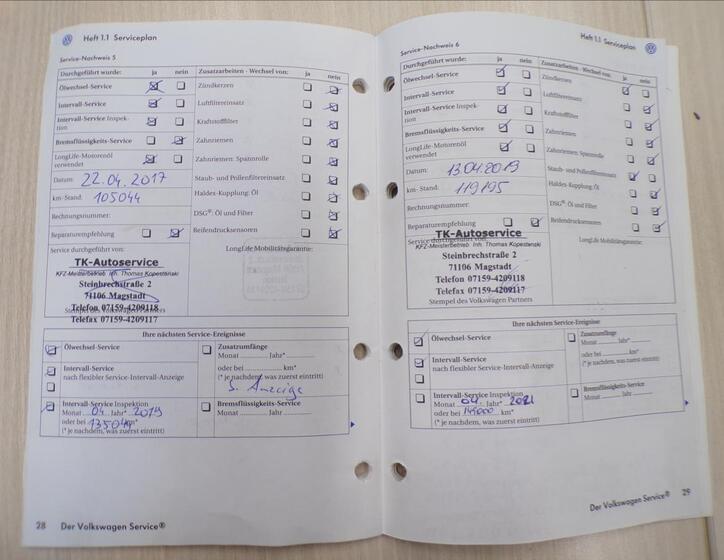 Heft 1.1 Serviceplan
Service-Nachweis 5
Durchgeführt wurde: ja nein Zusatzarbeiten - Wechsel von: ja nein
Ölwechsel-Service Zündkerzen
Intervall-Service Luftfiltereinsatz
Intervall-Service Inspek- Kraftstofffilter
tion
Bremsflüssigkeits-Service Zahnriemen
LongLife-Motorenöl Zahnriemen: Spannrolle
verwendet
Datum: 22.04.2017 Staub- und Pollenfiltereinsatz
km-Stand: 105044 Haldex-Kupplung: Öl
Rechnungsnummer: DSG®: Öl und Filter
Reparaturempfehlung Reifendrucksensoren
Service durchgeführt von: LongLife Mobilitätsgarantie:
TK-Autoservice
KFZ-Meisterbetrieb Inh. Thomas Kopestenski
Steinbrechstraße 2
71106 Magstadt
Telefon 07159-4209118
Stempel des Volkswagen Partners
Telefax 07159-4209117
Ihre nächsten Service-Ereignisse
Ölwechsel-Service Zusatzumfänge
Monat Jahr*
Intervall-Service oder bei km*
nach flexibler Service-Intervall-Anzeige (* je nachdem, was zuerst eintritt)
S. Anzeige
Intervall-Service Inspektion Bremsflüssigkeits-Service
Monat 04 Jahr* 2019 Monat Jahr
oder bei 135044 km*
(* je nachdem, was zuerst eintritt)
28 Der Volkswagen Service®
Heft 1.1 Serviceplan
Service-Nachweis 6
Durchgeführt wurde: ja nein Zusatzarbeiten - Wechsel von: ja nein
Ölwechsel-Service Zündkerzen
Intervall-Service Luftfiltereinsatz
Intervall-Service Inspek- Kraftstofffilter
tion
Bremsflüssigkeits-Service Zahnriemen
LongLife-Motorenöl Zahnriemen: Spannrolle
verwendet
Datum: 13.04.2019 Staub- und Pollenfiltereinsatz
km-Stand: 119195 Haldex-Kupplung: Öl
Rechnungsnummer: DSG®: Öl und Filter
Reparaturempfehlung Reifendrucksensoren
TK-Autoservice LongLife Mobilitätsgarantie:
Service durchgeführt von:
KFZ-Meisterbetrieb Inh. Thomas Kopestenski
Steinbrechstraße 2
71106 Magstadt
Telefon 07159-4209118
Telefax 07159-4209117
Stempel des Volkswagen Partners
Ihre nächsten Service-Ereignisse
Ölwechsel-Service Zusatzumfänge
Monat Jahr*
Intervall-Service oder bei km*
nach flexibler Service-Intervall-Anzeige (* je nachdem, was zuerst eintritt)
Intervall-Service Inspektion Bremsflüssigkeits-Service
Monat 04 Jahr* 2021 Monat Jahr
oder bei km*
(* je nachdem, was zuerst eintritt)
Der Volkswagen Service® 29